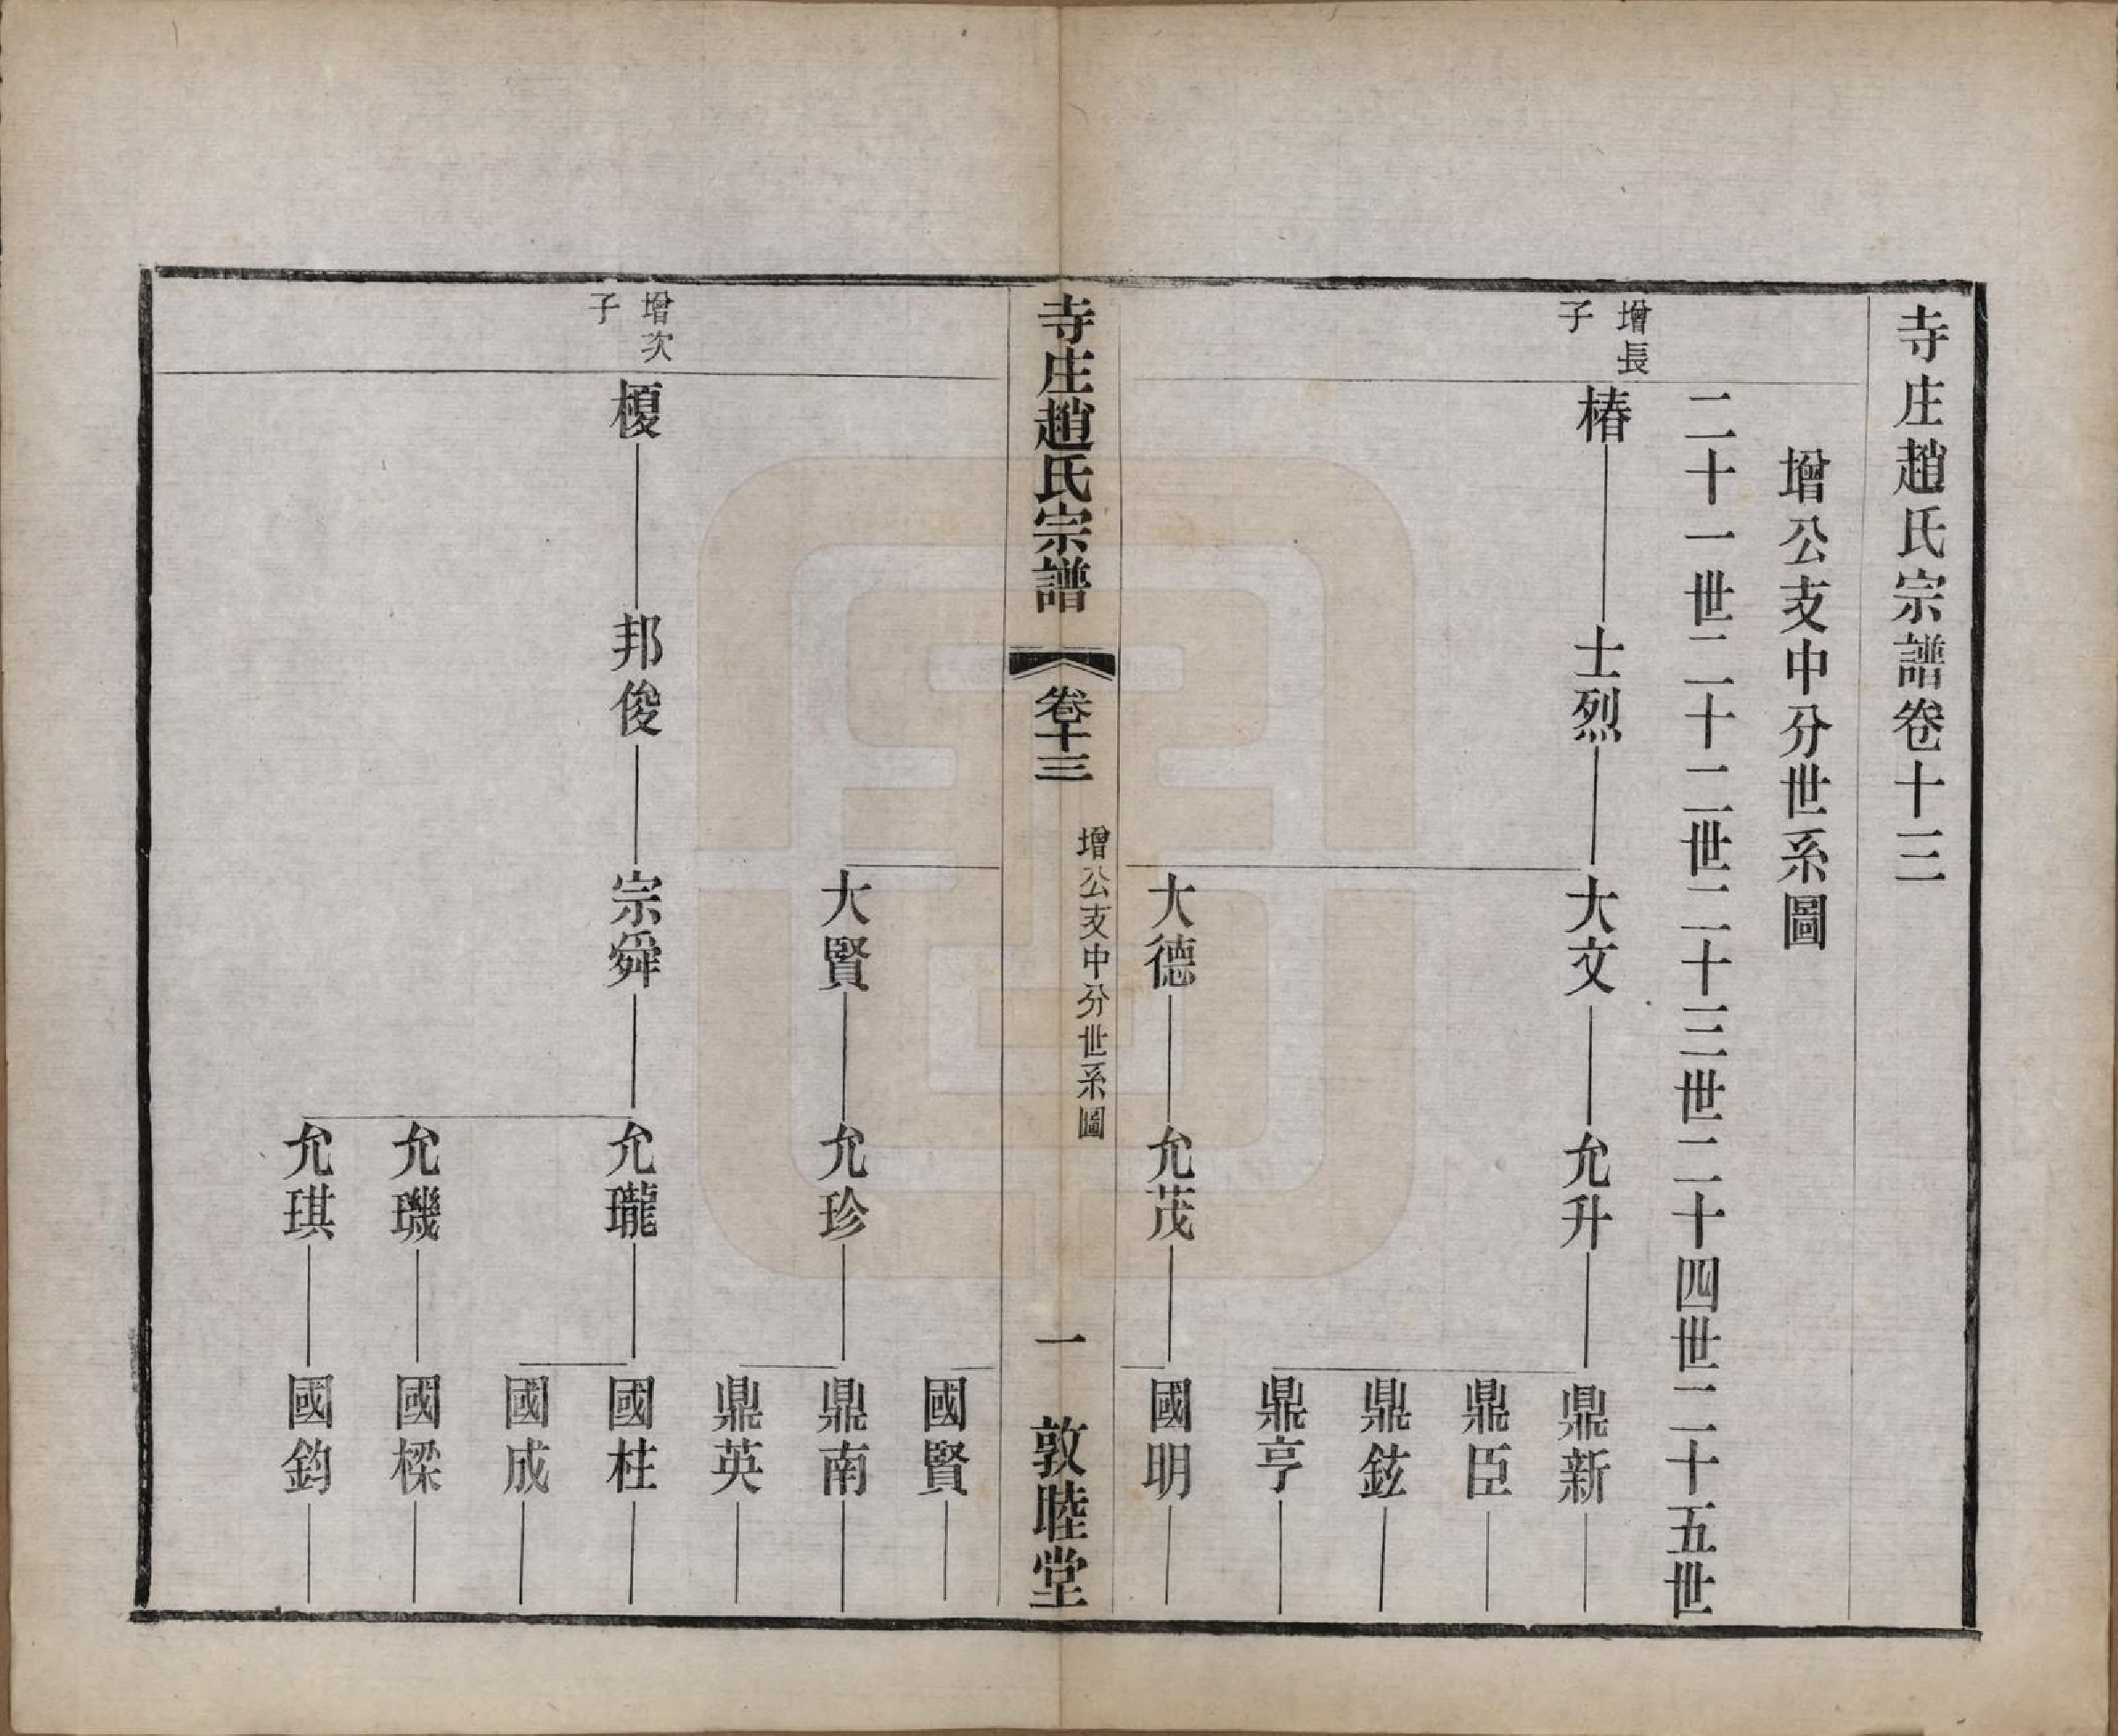 寺庄趙氏宗譜卷十三
增公支中分世系圖
二十一世二十二世二十三世二十四世二十五世
增長子
椿
士烈
大文
允升
鼎新
鼎臣
鼎鉉
鼎亨
大德
允茂
國明
寺庄趙氏宗譜
卷十三
增公支中分世系圖
一
敦睦堂
國賢
大賢
允珍
鼎南
鼎英
增次子
榎
邦俊
宗舜
允瓏
國柱
國成
允璣
國樑
允琪
國鈞